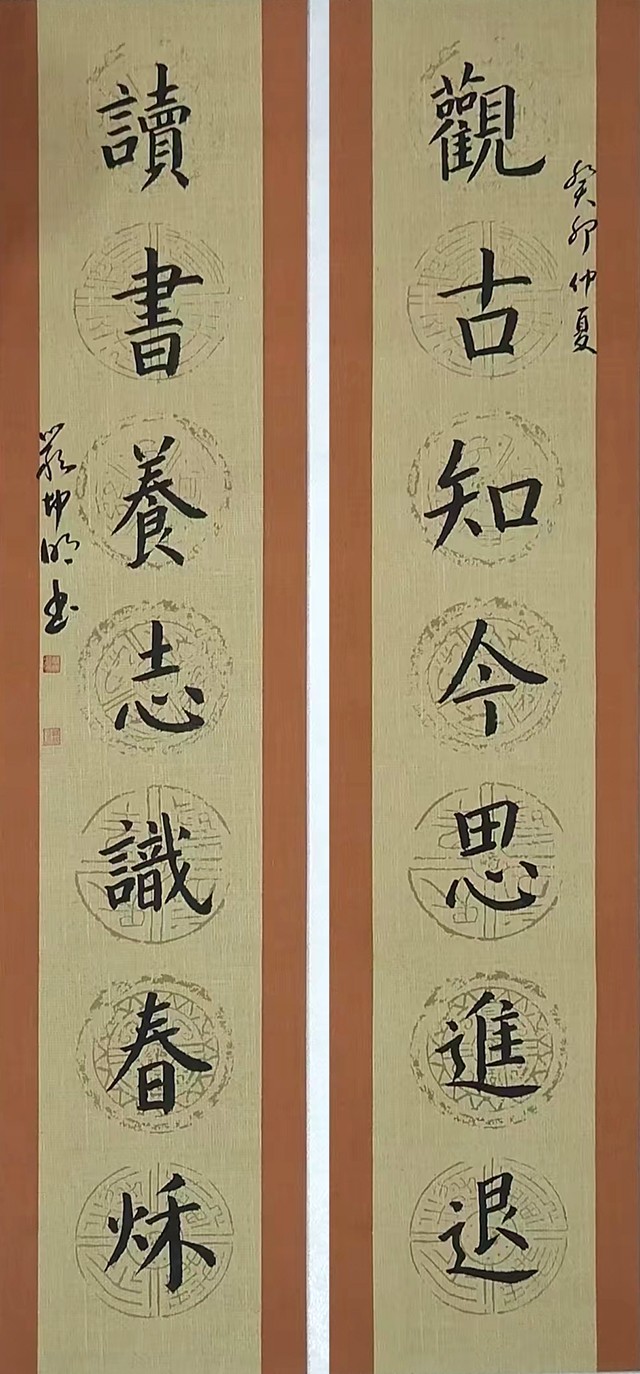 癸卯仲夏
觀古知今思進退
讀書養志識春秌
嚴坤明书